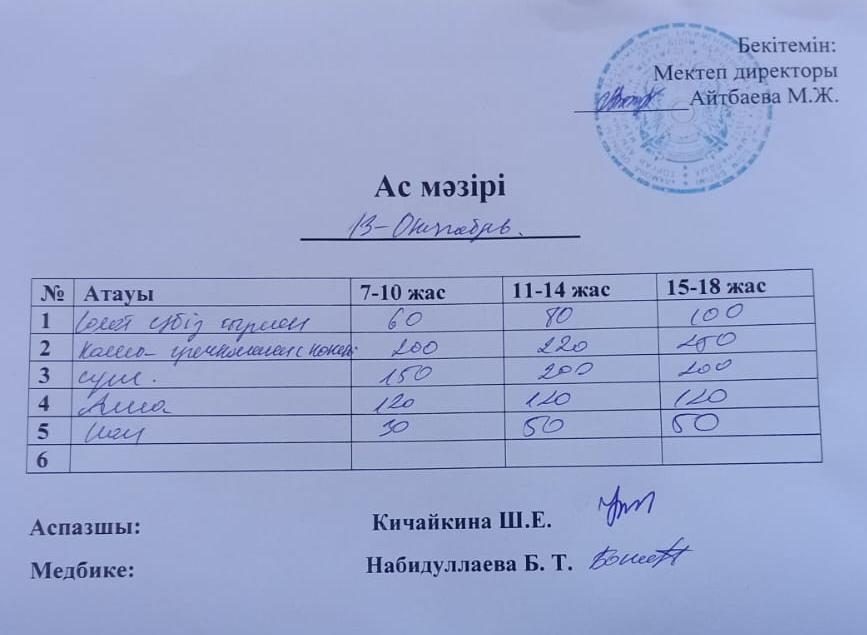 Бекітемін:
Мектеп директоры
Айтбаева М.Ж.
Ас мәзірі
13-Октябрь.
№ Атауы 7-10 жас 11-14 жас 15-18 жас
1 сәбіз 60 80 100
2 200 220 250
3 150 200 200
4 Алма 120 120 120
5 Нан 30 50 50
6
Аспазшы: Кичайкина Ш.Е.
Медбике: Набидуллаева Б. Т.